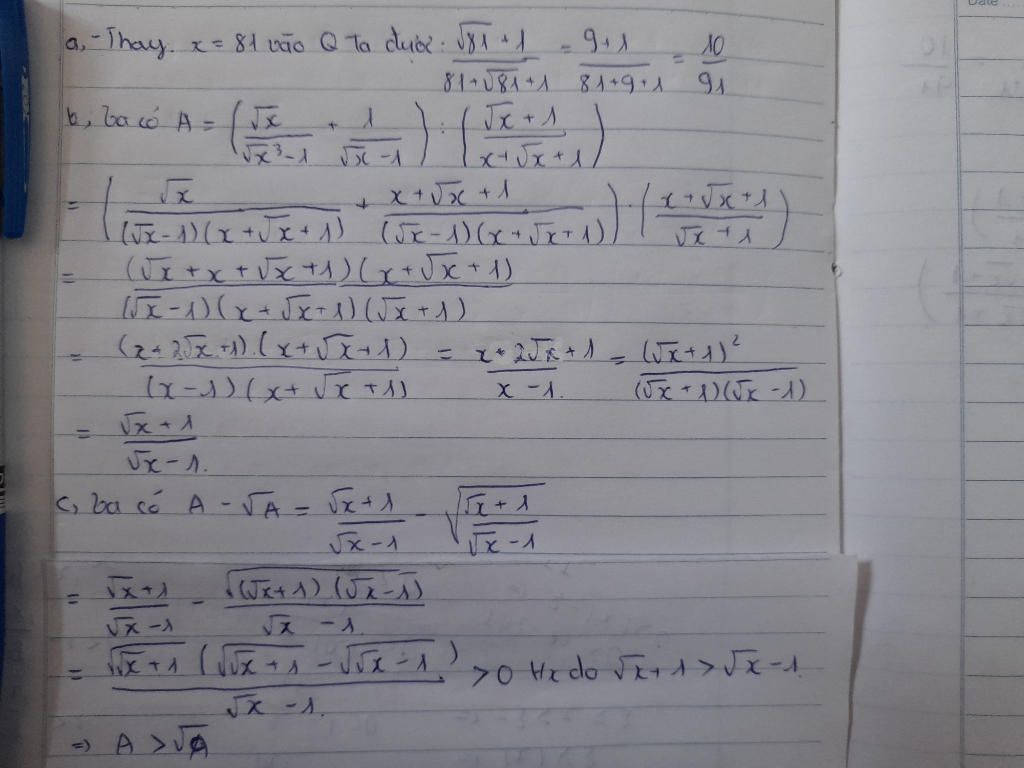 a, - Thay x = 81 vào Q Ta được: (√81 + 1)/(81+√81+1) = (9+1)/(81+9+1) = 10/91
b, Ta có A = (√x/(√x³-1) + 1/(√x-1)) : ((√x+1)/(x+√x+1))
= (√x/((√x-1)(x+√x+1)) + (x+√x+1)/((√x-1)(x+√x+1))) . ((x+√x+1)/(√x+1))
= ((√x+x+√x+1)(x+√x+1))/((√x-1)(x+√x+1)(√x+1))
= ((x+2√x+1).(x+√x+1))/((x-1)(x+√x+1)) = (x+2√x+1)/(x-1). = (√x+1)²/((√x+1)(√x-1))
= (√x+1)/(√x-1).
c, Ta có A - √A = (√x+1)/(√x-1) - √((√x+1)/(√x-1))
= (√x+1)/(√x-1) - √((√x+1)(√x-1))/(√x-1)
= √(√x+1)(√(√x+1) - √(√x-1))/(√x-1). > 0 ∀x do √x+1 > √x-1.
⇒ A > √A